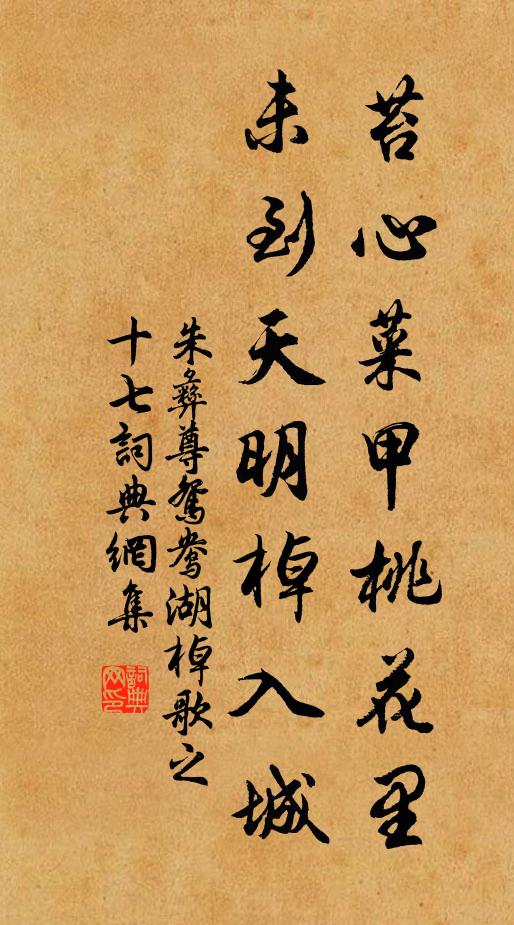 苔心菜甲桃花里
未到天明棹入城
朱彝尊鸳鸯湖棹歌之
十七詞典網集
詞典网印